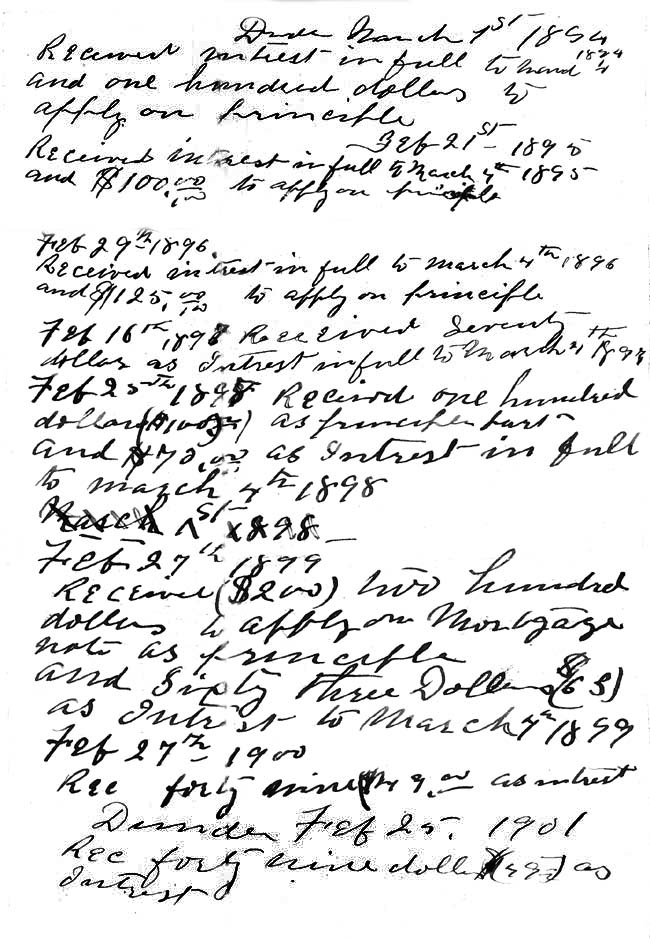 Dunde March 1st 1894
Received intrest in full to March 4 1894
and one hundred dollars to
apply on principle
Feb 21st 1895
Received intrest in full to March 4th 1895
and $100.00 to apply on principle
Feb 29th 1896
Received intrest in full to March 4th 1896
and $125.00 to apply on principle
Feb 16th 1897 Received Seventy
dollar as Intrest in full to March 4th 1897
Feb 25th 1898 Received one hundred
dollars ($100) as principle part
and $70.00 as Intrest in full
to march 4th 1898
March 1st 1898
Feb 27th 1899
Received ($200) two hundred
dollars to apply on Mortgage
note as principle
and Sixty three Dollars $(63)
as Intrest to March 4th 1899
Feb 27th 1900
Rec forty nine $49.00 as intrest
Dundee Feb 25. 1901
Rec forty nine dollars (49) as
Intrest